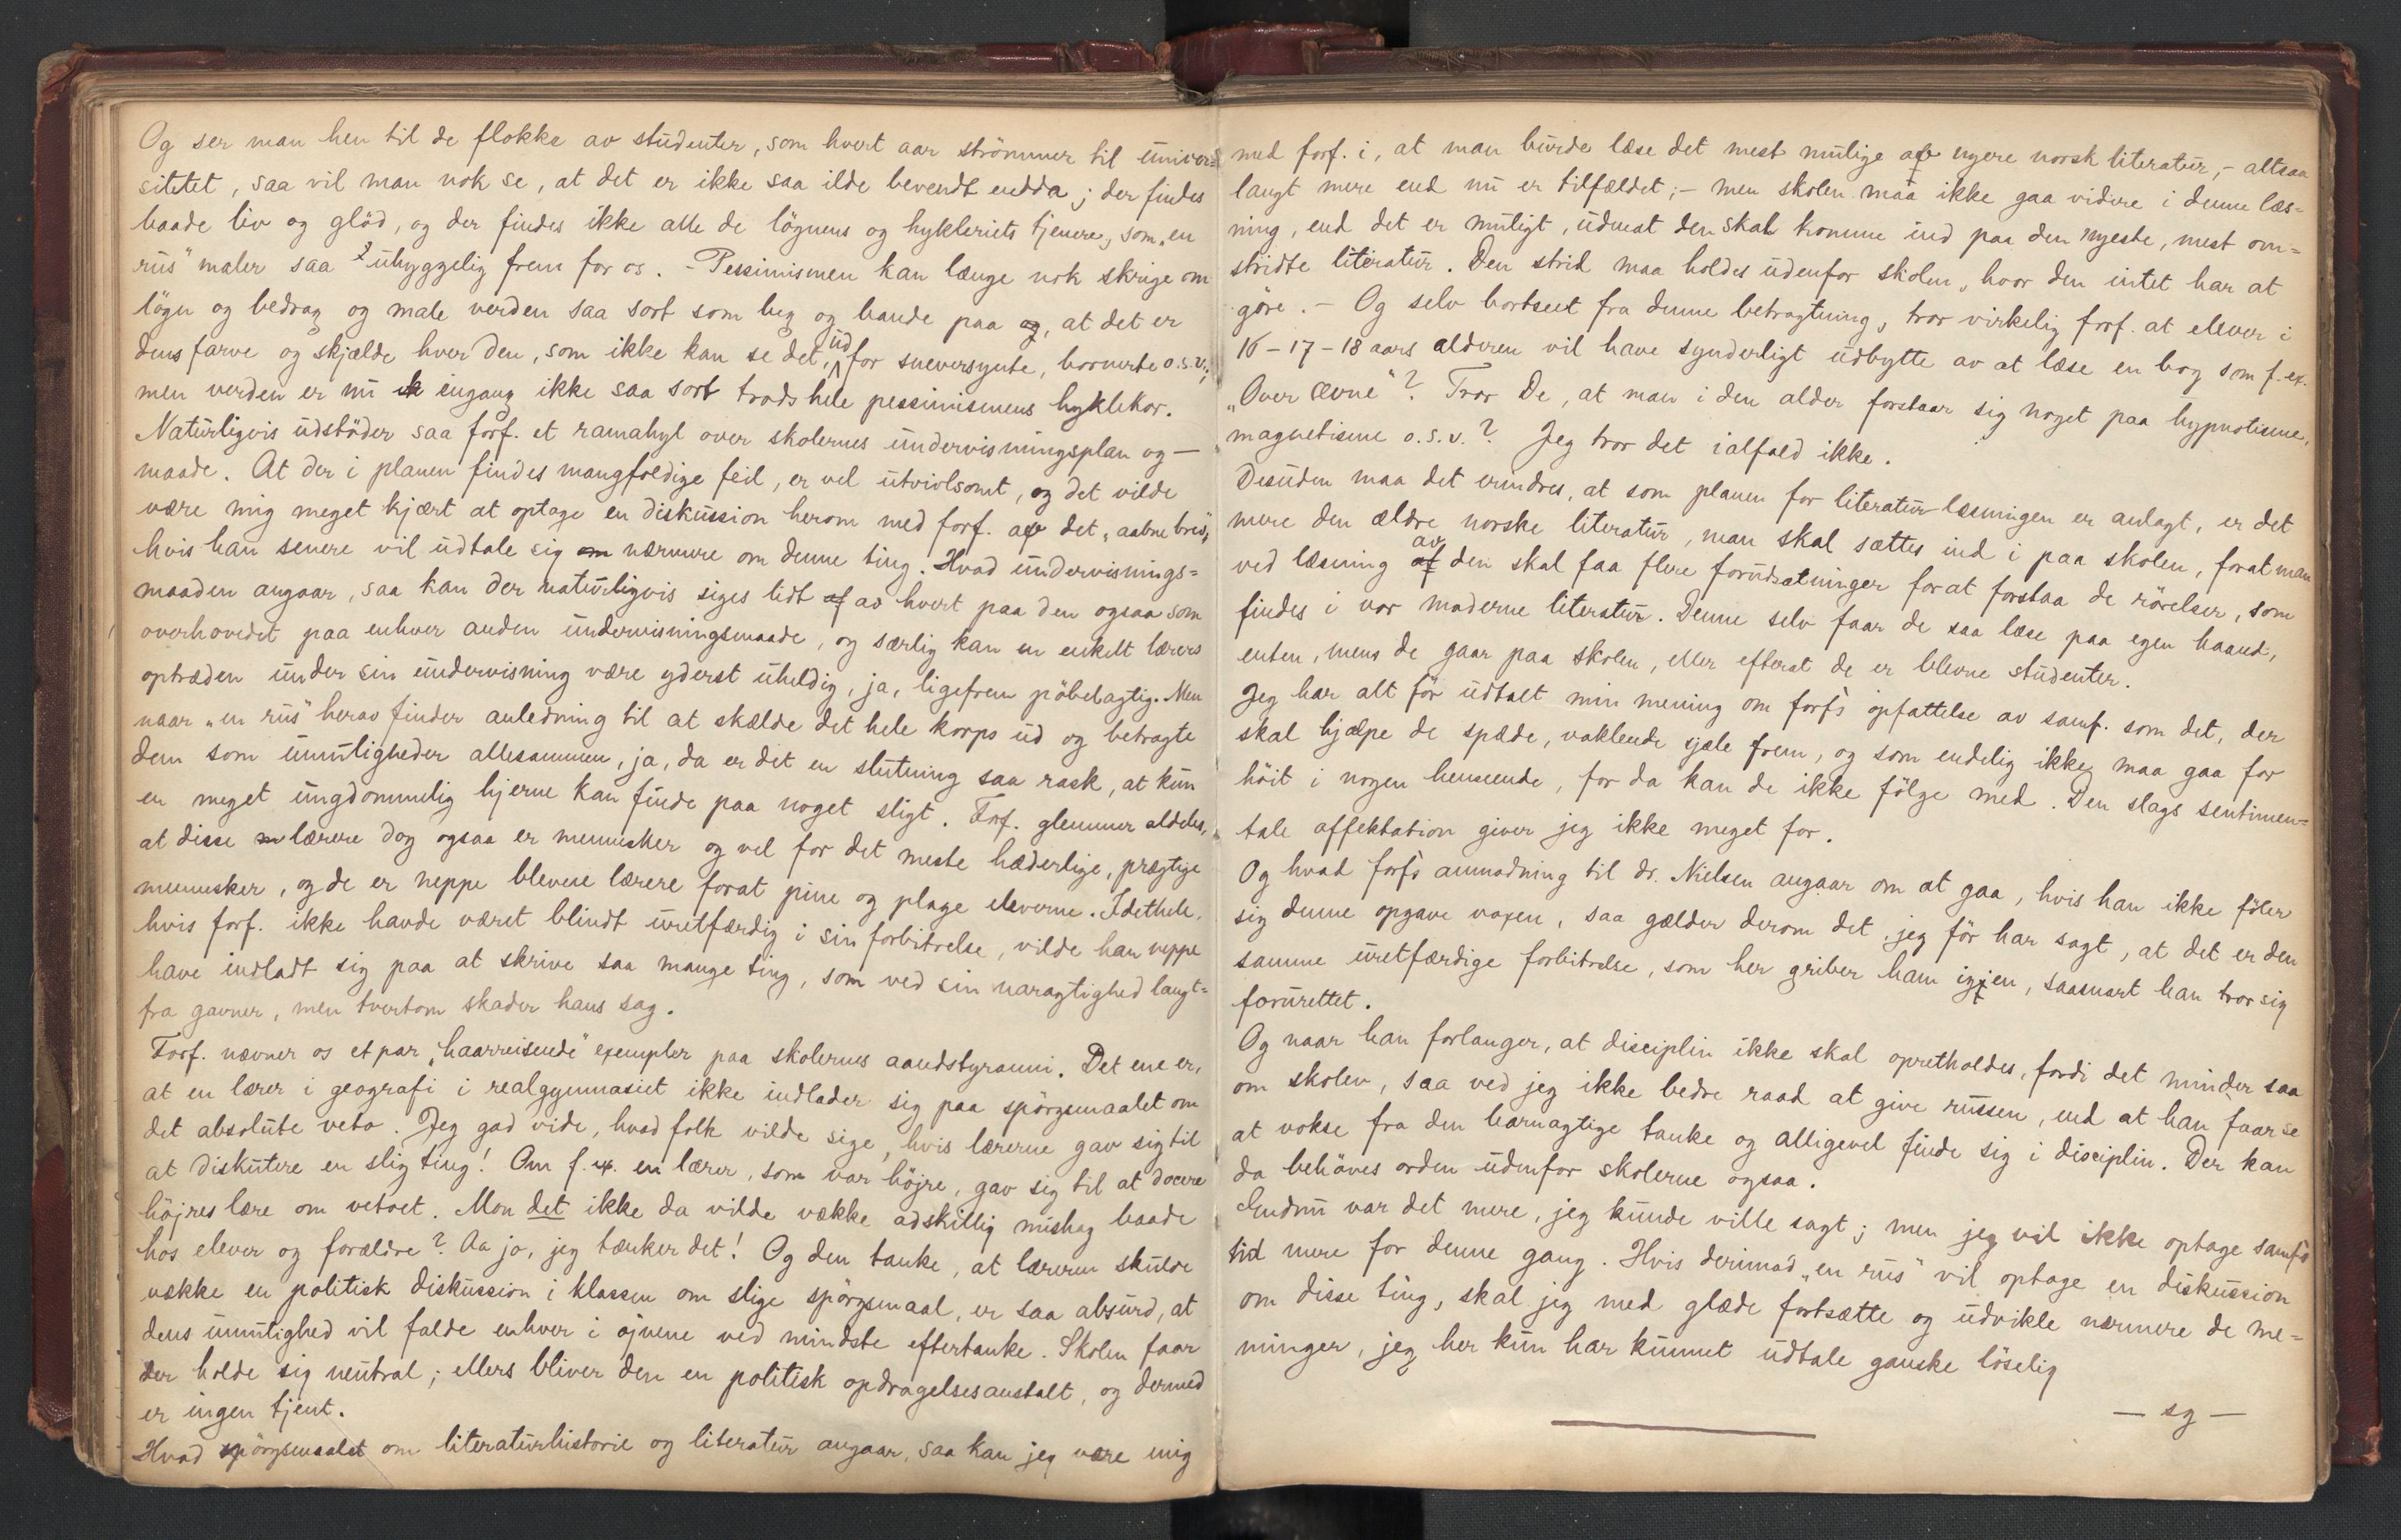 Og ser man hen til de flokke av studenter, som hvert aar strömmer til univer=
sitetet, saa vil man nok se, at det er ikke saa ilde bevendt endda; der findes
baade liv og glöd, og der findes ikke alle de lögnens og hykleriets tjenere, som „en
rus" maler saa uhyggelig frem for os. - Pessimismen kan længe nok skrige om
lögn og bedrag og male verden saa sort som beg og bande paa og, at det er
dens farve og skjælde hver den, som ikke kan se det, ud for sneversynte, bornerte o.s.v.;
men verden er nu engang ikke saa sort trods hele pessimismens hyklekor.
Naturligvis udstöder saa forf. et ramahyl over skolernes undervisningsplan og —
maade. At der i planen findes mangfoldige feil, er vel utvivlsomt, og det vilde
være mig meget kjært at optage en diskussion herom med forf. av det „aabne brev",
hvis han senere vil udtale sig om nærmere om denne ting. Hvad undervisnings=
maaden angaar, saa kan der naturligvis siges lidt af av hvert paa den ogsaa som
overhovedet paa enhver anden undervisningsmaade, og særlig kan en enkelt lærers
optræden under sin undervisning være yderst uheldig, ja, ligefrem pöbelagtig. Men
naar „en rus" herav finder anledning til at skælde det hele korps ud og betragte
dem som umuligheder allesammen, ja, da er det en slutning saa rask, at kun
en meget ungdommelig hjerne kan finde paa noget sligt. Forf. glemmer aldeles,
at disse lærere dog ogsaa er mennesker og vel for det meste hæderlige, prægtige
mennesker, og de er neppe blevene lærere forat pine og plage eleverne. Idethele,
hvis forf. ikke havde været blindt uretfærdig i sin forbitrelse, vilde han neppe
have indladt sig paa at skrive saa mange ting, som ved sin naragtighed langt=
fra gavner, men tvertom skader hans sag.
Forf. nævner os et par „haarreisende" exempler paa skolernes aandstyranni. Det ene er,
at en lærer i geografi i realgymnasiet ikke indlader sig paa spörgsmaalet om
det absolute veto. Jeg gad vide, hvad folk vilde sige, hvis lærerne gav sig til
at diskutere en slig ting! Om f. ex. en lærer, som var höjre, gav sig til at docere
höjres lære om vetoet. Mon det ikke da vilde vække adskillig mishag baade
hos elever og forældre? Aa jo, jeg tænker det! Og den tanke, at læreren skulde
vække en politisk diskussion i klassen om slige spörgsmaal, er saa absurd, at
dens umulighed vil falde enhver i öjnene ved mindste eftertanke. Skolen faar
der holde sig neutral; ellers bliver den en politisk opdragelsesanstalt, og dermed
er ingen tjent.
Hvad spörgsmaalet om literaturhistorie og literatur angaar, saa kan jeg være enig
med forf. i, at man burde læse det mest mulige av nyere norsk literatur, - altsaa
langt mere end nu er tilfældet; - men skolen maa ikke gaa videre i denne læs=
ning, end det er muligt, udenat den skal komme ind paa den nyeste, mest om=
stridte literatur. Den strid maa holdes udenfor skolen, hvor den intet har at
göre. - Og selv bortseet fra denne betragtning, tror virkelig forf. at elever i
16 - 17 - 18 aars alderen vil have synderligt udbytte av at læse en bog som f. ex.
„Over ævne"? Tror De, at man i den alder forstaar sig noget paa hypnotisme,
magnetisme o.s.v.? Jeg tror det ialfald ikke.
Desuden maa det erindres, at som planen for literatur-læsningen er anlagt, er det
mere den ældre norske literatur, man skal sættes ind i paa skolen, forat man
ved læsning af av den skal faa flere forudsætninger forat forstaa de rörelser, som
findes i vor moderne literatur. Denne selv faar de saa læse paa egen haand,
enten, mens de gaar paa skolen, eller efterat de er blevne studenter.
Jeg har alt för udtalt min mening om forf's opfattelse av samf. som det, der
skal hjælpe de spæde, vaklende sjæle frem, og som endelig ikke maa gaa for
höit i nogen henseende, for da kan de ikke fölge med. Den slags sentimen=
tale affektation giver jeg ikke meget for.
Og hvad forf's anmodning til dr. Nielsen angaar om at gaa, hvis han ikke föler
sig denne opgave voxen, saa gælder derom det, jeg för har sagt, at det er den
samme uretfærdige forbitrelse, som her griber ham igjen, saasnart han tror sig
forurettet.
Og naar han forlanger, at disciplin ikke skal opretholdes, fordi det minder saa
om skolen, saa ved jeg ikke bedre raad at give russen, end at han faar se
at vokse fra den barnagtige tanke og alligevel finde sig i disciplin. Der kan
da behöves orden udenfor skolerne ogsaa.
Endnu var det mere, jeg kunde ville sagt; men jeg vil ikke optage samf's
tid mere for denne gang. Hvis derimod „en rus" vil optage en diskussion
om disse ting, skal jeg med glæde fortsætte og udvikle nærmere de me=
ninger, jeg her kun har kunnet udtale ganske löselig
— sg —